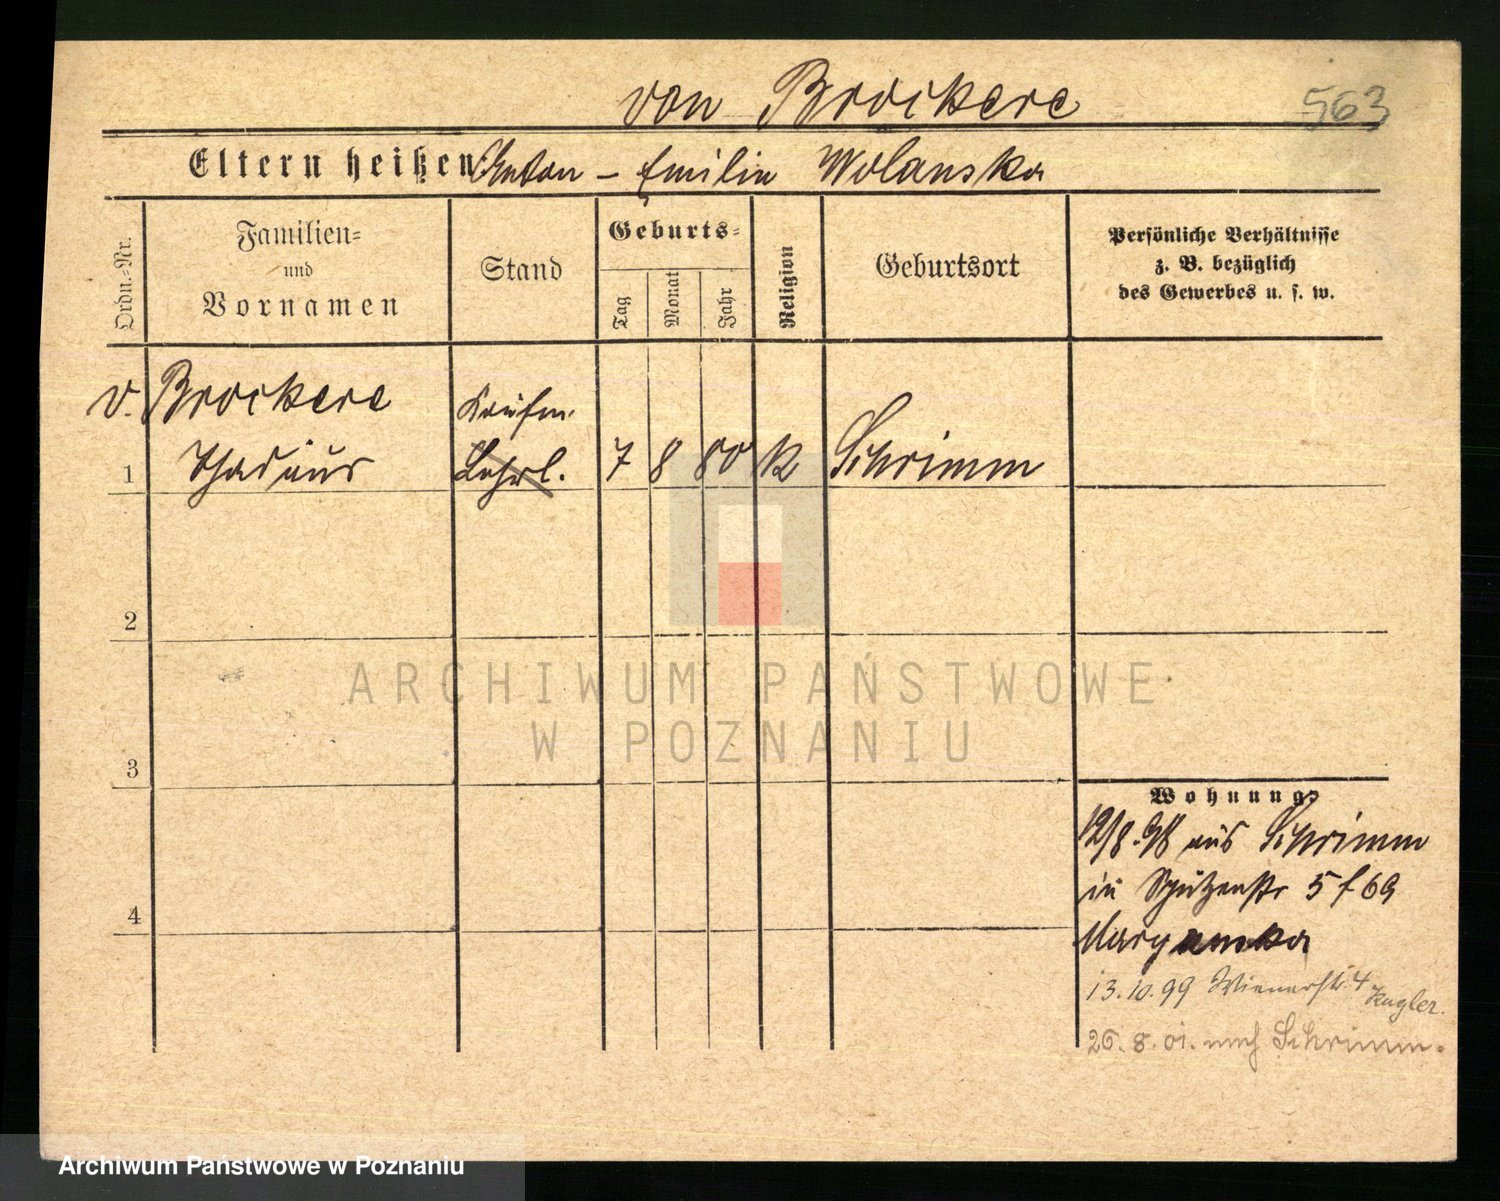 von Brockere
563
Eltern heißen Anton – Emilie Wolanska
Ordn.-Nr.
Familien-
und
Vornamen
Stand
Geburts-
Tag
Monat
Jahr
Religion
Geburtsort
Persönliche Verhältnisse
z. B. bezüglich
des Gewerbes u. s. w.
v. Brockere
Kaufm.
1 Thadäus Lehrl. 7 8 80 K Schrimm
2
3
4
Wohnung
12/8. 98 aus Schrimm
in Schützenstr 5 f 69
13.10.99 Wienerstr. 4
Kugler.
26. 8. 01. nach Schrimm.
ARCHIWUM PAŃSTWOWE
W POZNANIU
Archiwum Państwowe w Poznaniu